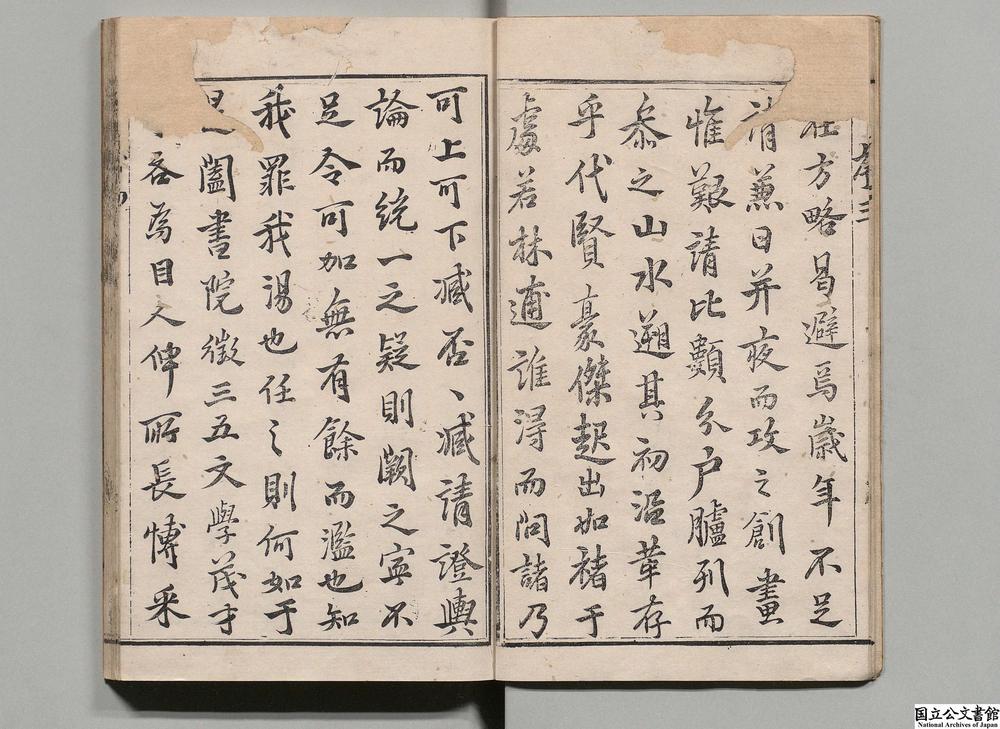 序三
在方略曷避焉歲年不足
請兼日并夜而攻之創畫
惟艱請比顰分戶臚列而
叅之山水遡其初溢華存
乎代賢豪傑起出如褚于
虞若林逋誰得而問諸乃
可上可下臧否、臧請證輿
論而統一之疑則闕之寧不
足令可加無有餘而濫也知
我罪我湯也任之則何如于
闔書院徵三五文學茂才
客為目之伸所長博采
国立公文書館
National Archives of Japan